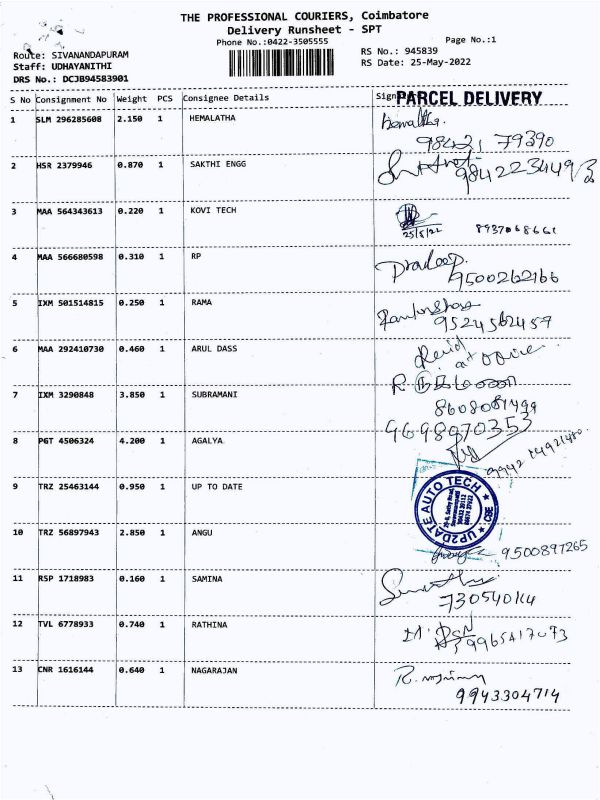 THE PROFESSIONAL COURIERS, Coimbatore
Delivery Runsheet - SPT
Phone No.:0422-3505555
Page No.:1
Route: SIVANANDAPURAM
RS No.: 945839
Staff: UDHAYANITHI
RS Date: 25-May-2022
DRS No.: DCJB94583901
S No Consignment No Weight PCS Consignee Details
PARCEL DELIVERY
1 SLM 296285608 2.150 1 HEMALATHA Hemalatha.
98421 79390
2 HSR 2379946 0.870 1 SAKTHI ENGG
9842234493
3 MAA 564343613 0.220 1 KOVI TECH
25/5/22 8937068661
4 MAA 566680598 0.310 1 RP Pradeep.
9500262166
5 IXM 501514815 0.250 1 RAMA
9524562457
6 MAA 292410730 0.460 1 ARUL DASS
at office.
7 IXM 3290848 3.850 1 SUBRAMANI
9698070353
8 PGT 4506324 4.200 1 AGALYA
9 TRZ 25463144 0.950 1 UP TO DATE
UP2DATE AUTO TECH
CBE
10 TRZ 56897943 2.850 1 ANGU
9500897265
11 RSP 1718983 0.160 1 SAMINA
12 TVL 6778933 0.740 1 RATHINA
13 CNR 1616144 0.640 1 NAGARAJAN
9943304714